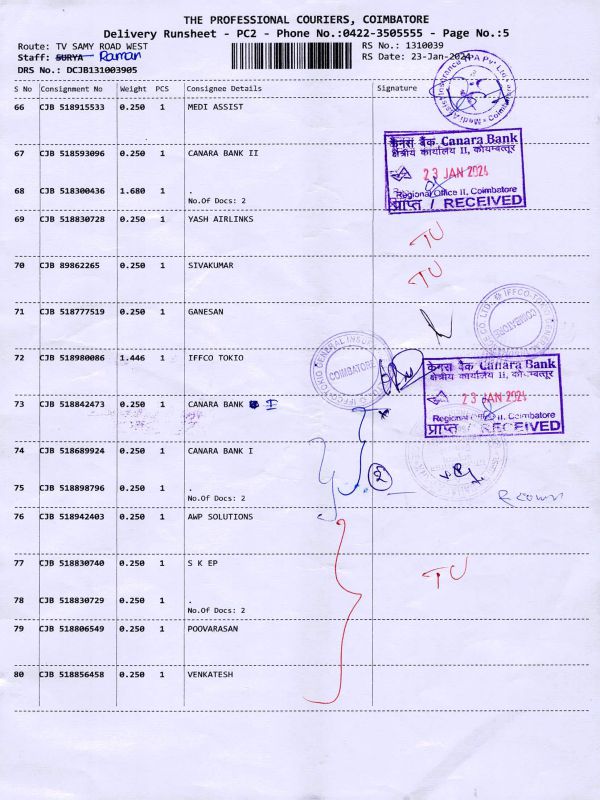 THE PROFESSIONAL COURIERS, COIMBATORE
Delivery Runsheet - PC2 - Phone No.:0422-3505555 - Page No.:5
Route: TV SAMY ROAD WEST
RS No.: 1310039
Staff: SURYA Raman
RS Date: 23-Jan-2024
DRS No.: DCJB131003905
S No Consignment No Weight PCS Consignee Details Signature
66 CJB 518915533 0.250 1 MEDI ASSIST
केनरा बैंक Canara Bank
क्षेत्रीय कार्यालय II, कोयम्बत्तूर
23 JAN 2024
Regional Office II, Coimbatore
प्राप्त / RECEIVED
67 CJB 518593096 0.250 1 CANARA BANK II
68 CJB 518300436 1.680 1 .
No.Of Docs: 2
69 CJB 518830728 0.250 1 YASH AIRLINKS
TU
70 CJB 89862265 0.250 1 SIVAKUMAR
TU
71 CJB 518777519 0.250 1 GANESAN
72 CJB 518980086 1.446 1 IFFCO TOKIO
COIMBATORE
COIMBATORE
केनरा बैंक Canara Bank
क्षेत्रीय कार्यालय II, कोयम्बत्तूर
23 JAN 2024
Regional Office II, Coimbatore
प्राप्त / RECEIVED
73 CJB 518842473 0.250 1 CANARA BANK I
74 CJB 518689924 0.250 1 CANARA BANK I
75 CJB 518898796 0.250 1 .
No.Of Docs: 2
2
76 CJB 518942403 0.250 1 AWP SOLUTIONS
77 CJB 518830740 0.250 1 S K EP
TU
78 CJB 518830729 0.250 1 .
No.Of Docs: 2
79 CJB 518806549 0.250 1 POOVARASAN
80 CJB 518856458 0.250 1 VENKATESH